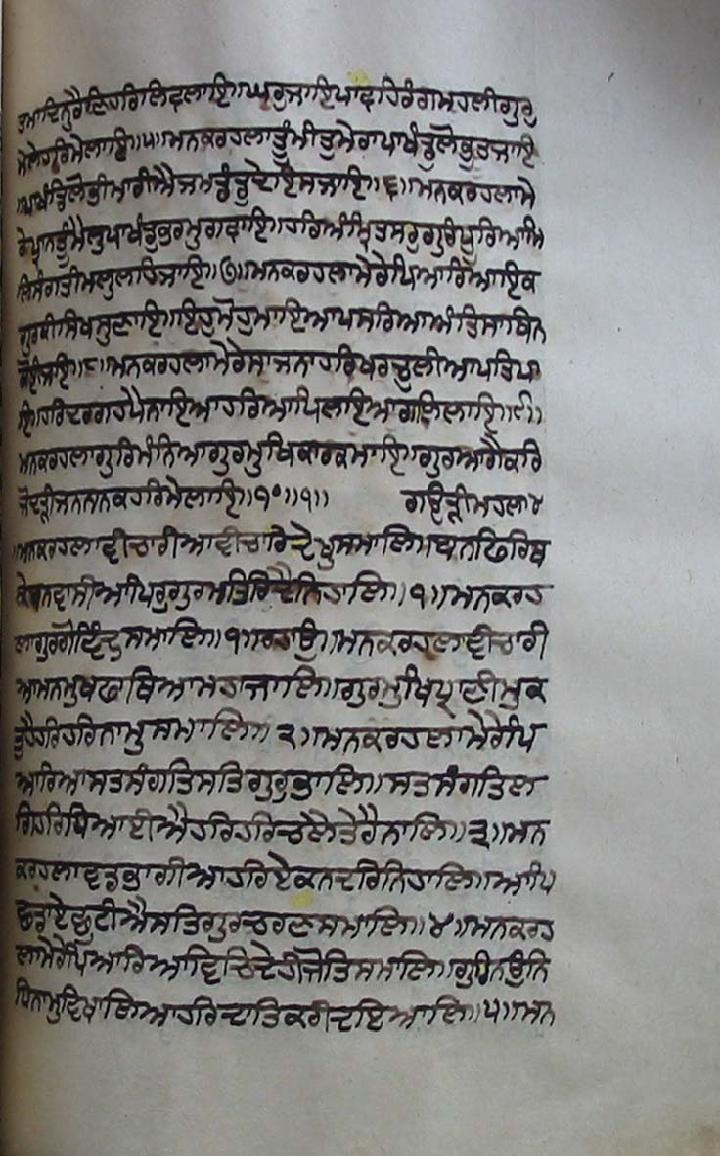 ਤਮਾਦਿਨੁਰੈਣਿਹਰਿਲਿਵਲਾਇ॥ਘਰੁਜਾਇਪਾਵਹਿਰੰਗਮਹਲੀਗੁਰੁ
ਮੇਲੇਹਰਿਮੇਲਾਇ॥੫॥ਮਨਕਰਹਲਾਤੂੰਮੀਤੁਮੇਰਾਪਾਖੰਡੁਲੋਭੁਤਜਾਇ
॥ਪਾਖੰਡਿਲੋਭੀਮਾਰੀਐਜਮਡੰਡੁਦੇਇਸਜਾਇ॥੬॥ਮਨਕਰਹਲਾਮੇ
ਰੇਪ੍ਰਾਨਤੂੰਮੈਲੁਪਾਖੰਡੁਭਰਮੁਗਵਾਇ॥ਹਰਿਅੰਮ੍ਰਿਤਸਰੁਗੁਰਿਪੂਰਿਆਮਿ
ਲਿਸੰਗਤੀਮਲੁਲਹਿਜਾਇ॥੭॥ਮਨਕਰਹਲਾਮੇਰੇਪਿਆਰਿਆਇਕ
ਗੁਰਕੀਸਿਖਸੁਣਾਇ॥ਇਹੁਮੋਹੁਮਾਇਆਪਸਰਿਆਅੰਤਿਸਾਥਿਨ
ਕੋਈਜਾਇ॥੮॥ਮਨਕਰਹਲਾਮੇਰੇਸਾਜਨਾਹਰਿਖਰਚੁਲੀਆਪਤਿਪਾ
ਇ॥ਹਰਿਦਰਗਹਪੈਨਾਇਆਹਰਿਆਪਿਲਾਇਆਗਲਿਲਾਇ॥੯॥
ਮਨਕਰਹਲਾਗੁਰਿਮੰਨਿਆਗੁਰਮੁਖਿਕਾਰਕਮਾਇ॥ਗੁਰਆਗੈਕਰਿ
ਜੋਦੜੀਜਨਨਾਨਕਹਰਿਮੇਲਾਇ॥੧੦॥੧॥ ਗਉੜੀਮਹਲਾ੪
॥ਮਨਕਰਹਲਾਵੀਚਾਰੀਆਵੀਚਾਰਿਦੇਖੁਸਮਾਲਿ॥ਬਨਫਿਰਿਥ
ਕੇਬਨਵਾਸੀਆਪਿਰੁਗੁਰਮਤਿਰਿਦੈਨਿਹਾਲਿ॥੧॥ਮਨਕਰਹ
ਲਾਗੁਰਗੋਵਿੰਦੁਸਮਾਲਿ॥੧॥ਰਹਾਉ॥ਮਨਕਰਹਲਾਵੀਚਾਰੀ
ਆਮਨਮੁਖਫਾਥਿਆਮਹਾਜਾਲਿ॥ਗੁਰਮੁਖਿਪ੍ਰਾਣੀਮੁਕ
ਤੁਹੈਹਰਿਹਰਿਨਾਮੁਸਮਾਲਿ॥੨॥ਮਨਕਰਹਲਾਮੇਰੇਪਿ
ਆਰਿਆਸਤਸੰਗਤਿਸਤਿਗੁਰੁਭਾਲਿ॥ਸਤਸੰਗਤਿਲ
ਗਿਹਰਿਧਿਆਈਐਹਰਿਹਰਿਚਲੈਤੇਰੈਨਾਲਿ॥੩॥ਮਨ
ਕਰਹਲਾਵਡਭਾਗੀਆਹਰਿਏਕਨਦਰਿਨਿਹਾਲਿ॥ਆਪਿ
ਛਡਾਏਛੁਟੀਐਸਤਿਗੁਰਚਰਣਸਮਾਲਿ॥੪॥ਮਨਕਰਹ
ਲਾਮੇਰੇਪਿਆਰਿਆਵਿਚਿਦੇਹੀਜੋਤਿਸਮਾਲਿ॥ਗੁਰਿਨਉਨਿ
ਧਿਨਾਮੁਵਿਖਾਲਿਆਹਰਿਦਾਤਿਕਰੀਦਇਆਲਿ॥੫॥ਮਨ